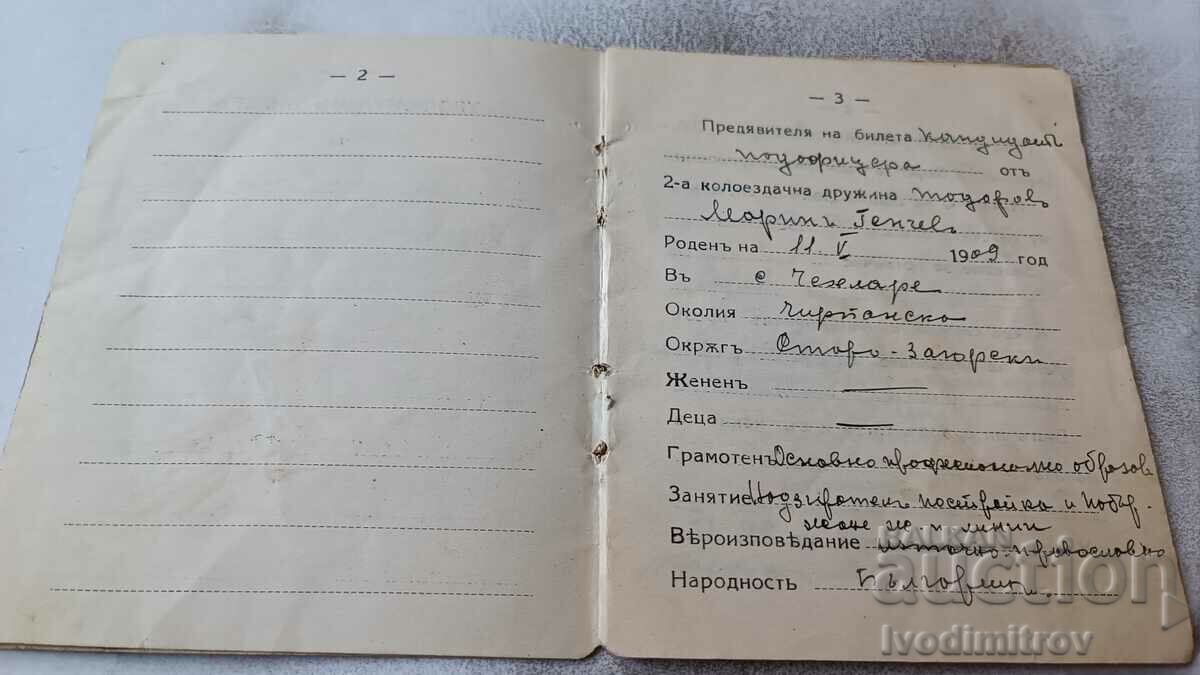 — 2 —
— 3 —
Предявителя на билета кандидатъ
подофицера отъ
2-а колоездачна дружина Тодоровъ
Маринъ Генчевъ
Роденъ на 11 V 1909 год
Въ с Чехларе
Околия Чирпанска
Окрѫгъ Старо-Загорски
Жененъ —
Деца —
Грамотенъ Основно професионално образов
Занятие Надзирателъ постройка и
линии
Вѣроизповѣдание източно-православно
Народность Българинъ.
BALKAN
auction
Ivodimitrov